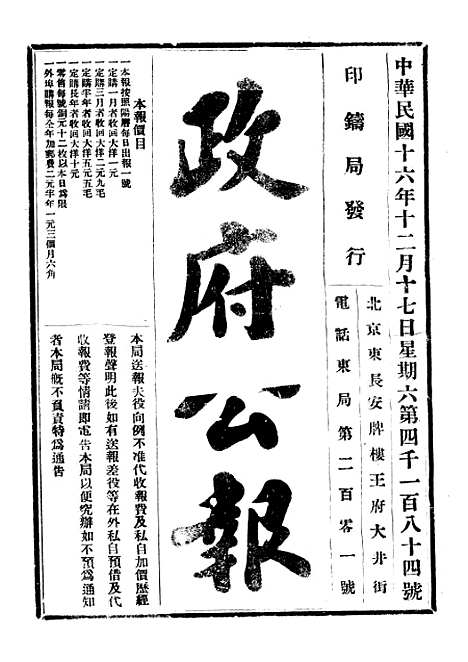 中華民國十六年十二月十七日星期六第四千一百八十四號
印鑄局發行
北京東長安牌樓王府大井街
電話東局第二百零一號
政府公報
本報價目
一本報按照陽曆每日出報一號
一定購一月者收回大洋一元
一定購三月者收回大洋二元九毛
一定購半年者收回大洋五元五毛
一定購長年者收回大洋十元
一零售每號銅元十二枚以本日為限
一外埠購報每全年加郵費二元半年一元三個月六角
本局送報夫役向例不准代收報費及私自加價歷經
登報聲明此後如有送報差役等在外私自預借及代
收報費等情請即電告本局以便究辦如不預為通知
者本局概不負責特為通告